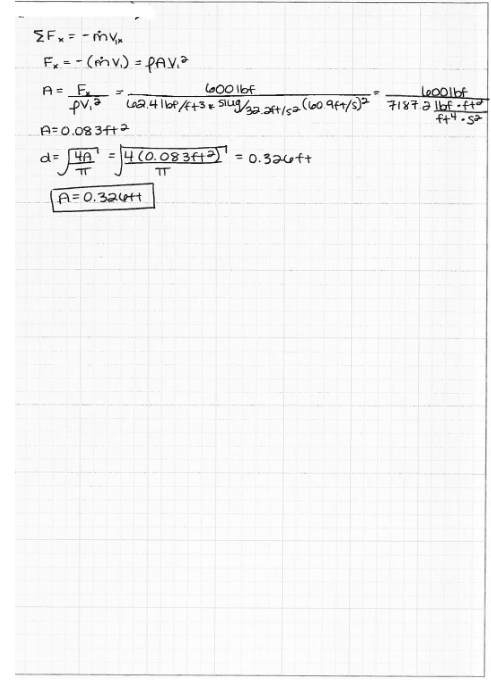 ΣFₓ = -ṁv₁ₓ
Fₓ = -(ṁV₁) = ρAV₁²
A = Fₓ/ρV₁² = 600lbf/62.4lbf/ft3 * slug/32.2ft/s²(60.9ft/s)² = 600lbf/7187.2 lbf·ft²/ft⁴·s²
A=0.083ft²
d=√4A/π = √4(0.083ft²)/π = 0.326ft
A=0.326ft